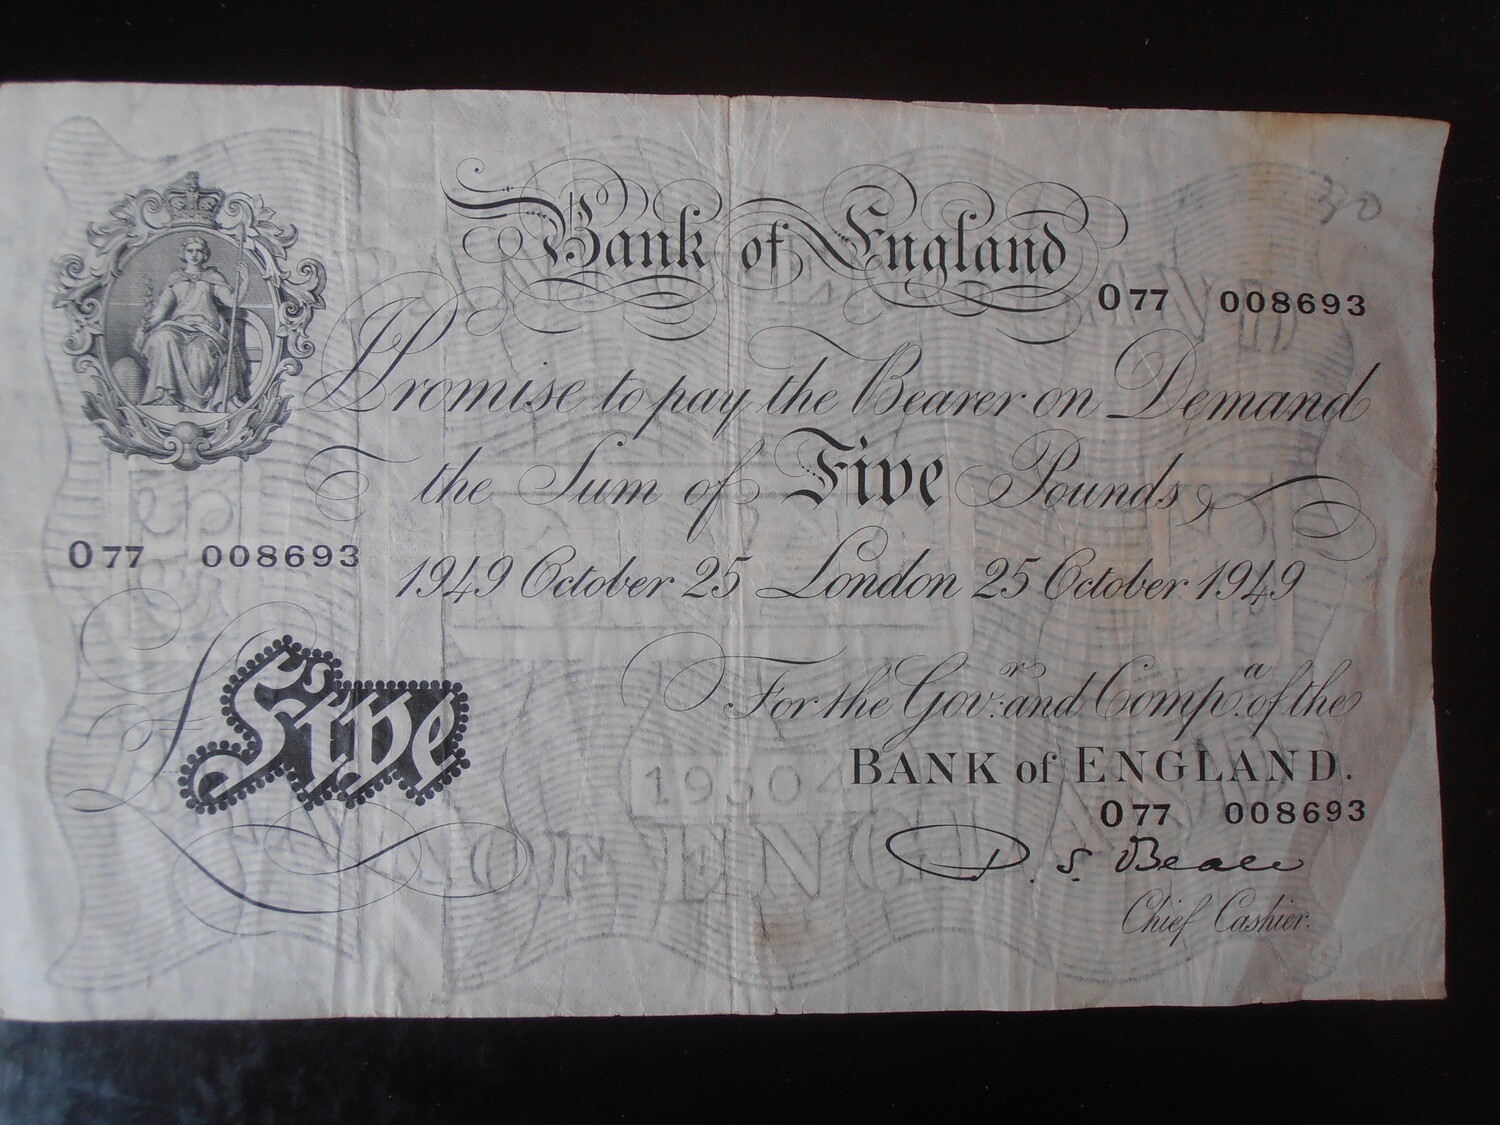 30
Bank of England
O77 008693
I Promise to pay the Bearer on Demand
the Sum of Five Pounds
O77 008693
1949 October 25 London 25 October 1949
For the Govr. and Compa. of the
BANK of ENGLAND.
O77 008693
£ Five
D. S. Beale
Chief Cashier.
BANK OF ENGLAND